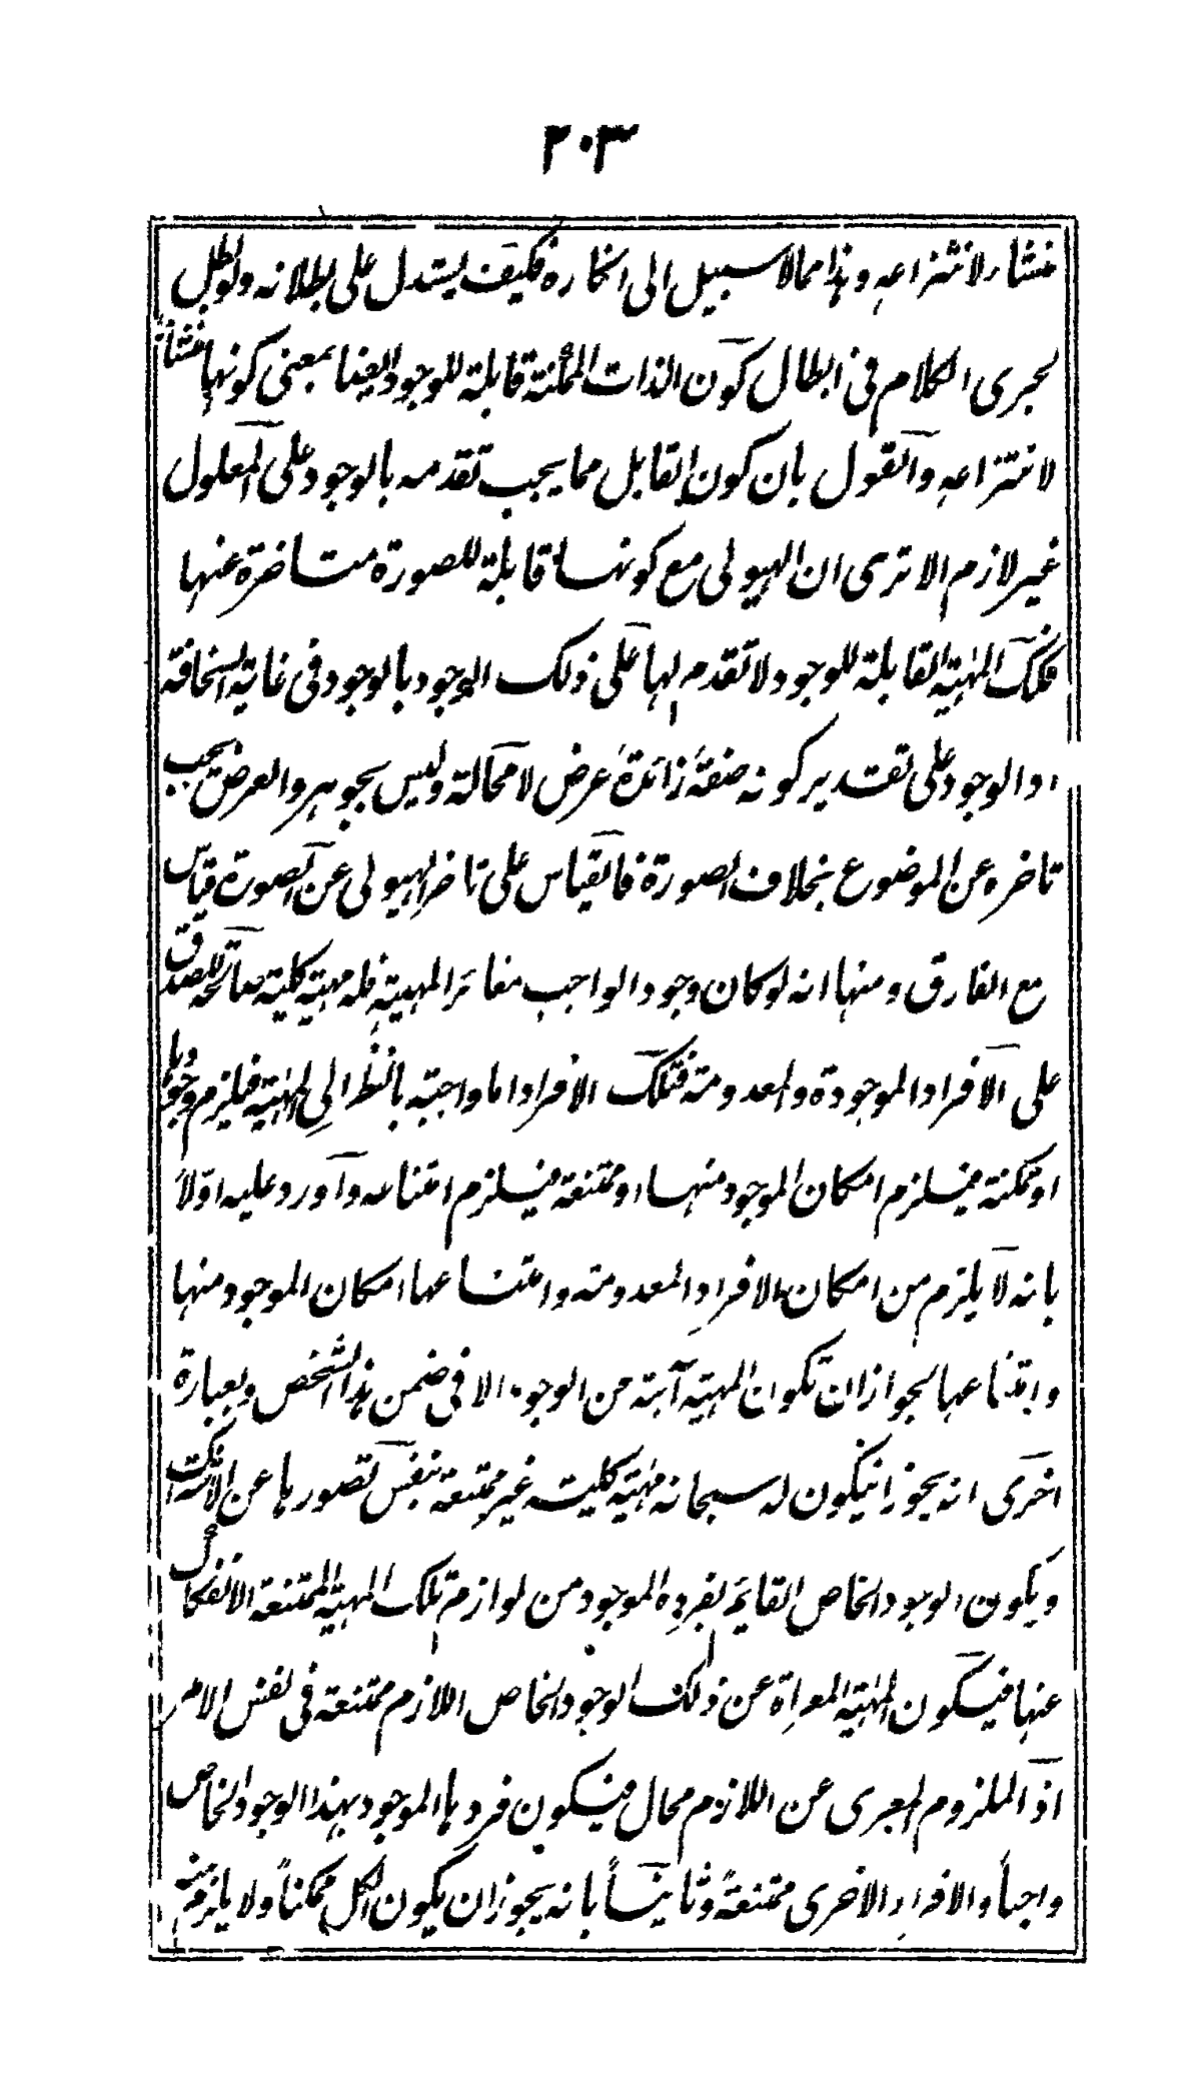 ٢٠٣
منشاء لانتزاعه وهذا مما لا سبيل الى انكاره فكيف يستدل على بطلانه ولو بطل
لجرى الكلام فى ابطال كون الذات الممكنة قابلة للوجود ايضا بمعنى كونها منشاء
لانتزاعه والقول بان كون القابل مما يجب تقدمه بالوجود على المعلول
غير لازم الا ترى ان الهيولى مع كونها قابلة للصورة متاخرة عنها
فكذلك المهية القابلة للوجود لا تقدم لها على ذلك الوجود بالوجود فى غاية السخافة
اذ الوجود على تقدير كونه صفة زائدة عرض لا محالة وليس بجوهر والعرض يجب
تاخره عن الموضوع بخلاف الصورة فالقياس على تاخر الهيولى عن الصورة قياس
مع الفارق ومنها انه لو كان وجود الواجب مغائر المهيته فله مهية كلية صالحة للصدق
على الافراد الموجودة والمعدومة فتلك الافراد اما واجبة بالنظر الى المهية فيلزم وجودها
او ممكنة فيلزم امكان الموجود منها او ممتنعة فيلزم امتناعه وآورد عليه اوّلاً
بانه لا يلزم من امكان الافراد المعدومة وامتناعها امكان الموجود منها
وامتناعها لجواز ان تكون المهية آبية من الوجود الا فى ضمن هذا الشخص وبعبارة
اخرى انه يجوز ان يكون له سبحانه مهية كلية غير ممتنعة بنفس تصورها عن الاشتراك
ويكون الوجود الخاص القايم بفرده الموجود من لوازم تلك المهية الممتنعة الانفكاك
عنها فيكون المهية المعراة عن ذلك الوجود الخاص اللازم ممتنعة فى نفس الامر
اذ الملزوم المعرى عن اللازم محال فيكون فردها الموجود بهذا الوجود الخاص
واجباً والافراد الاخرى ممتنعةً وثانياً بانه يجوز ان يكون الكل ممكناً ولا يلزم منه